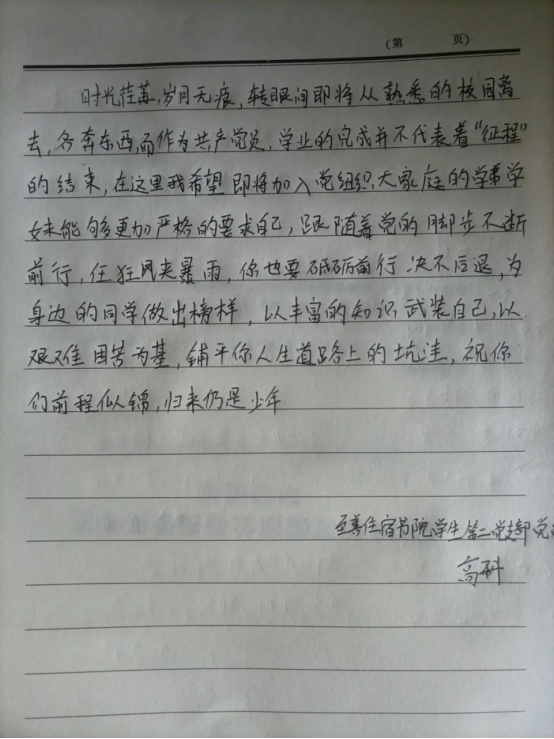 (第 页)
时光荏苒,岁月无痕,转眼间即将从熟悉的校园离
去,各奔东西,而作为共产党员,学业的完成并不代表着“征程”
的结束,在这里我希望即将加入党组织大家庭的学弟学
妹能够更加严格的要求自己,跟随着党的脚步不断
前行,任狂风夹暴雨,你也要砥砺前行,决不后退,为
身边的同学做出榜样,以丰富的知识武装自己,以
艰难困苦为基,铺平你人生道路上的坑洼,祝你
们前程似锦,归来仍是少年
至善住宿书院学生第二党支部党
高科